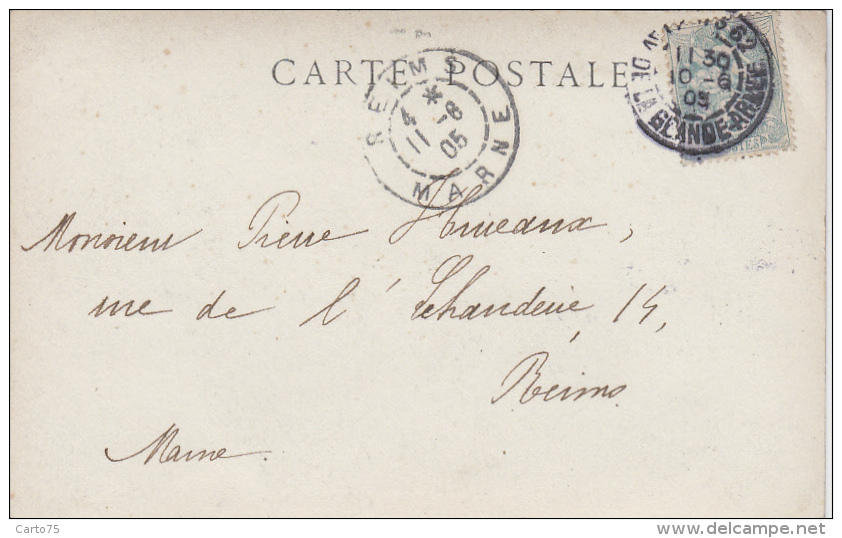 CARTE POSTALE
REIMS
4 * 6
11 05
MARNE
11 30
10 - 6
05
DE LA GRANDE-ARMÉE
Monsieur Pierre Humeaux,
rue de l'Echanderie, 14,
Reims
Marne.
Carto75
delcampe.net